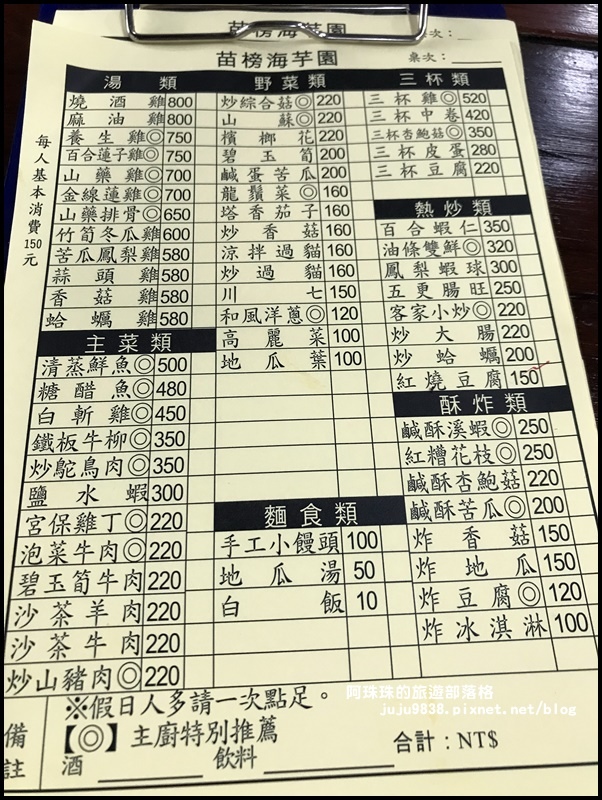 苗榜海芋園
桌次：
苗榜海芋園
桌次：
每人基本消費150元
湯類
燒酒雞 800
麻油雞 800
養生雞◎ 750
百合蓮子雞◎ 750
山藥雞◎ 700
金線蓮雞◎ 700
山藥排骨◎ 650
竹筍冬瓜雞 600
苦瓜鳳梨雞 580
蒜頭雞 580
香菇雞 580
蛤蠣雞 580
主菜類
清蒸鮮魚◎ 500
糖醋魚◎ 480
白斬雞◎ 450
鐵板牛柳◎ 350
炒鴕鳥肉◎ 350
鹽水蝦 300
宮保雞丁◎ 220
泡菜牛肉◎ 220
碧玉筍牛肉 220
沙茶羊肉 220
沙茶牛肉 220
炒山豬肉◎ 220
野菜類
炒綜合菇◎ 220
山蘇◎ 220
檳榔花 220
碧玉筍 200
鹹蛋苦瓜 200
龍鬚菜◎ 160
塔香茄子 160
炒香菇 160
涼拌過貓 160
炒過貓 160
川七 150
和風洋蔥◎ 120
高麗菜 100
地瓜葉 100
麵食類
手工小饅頭 100
地瓜湯 50
白飯 10
三杯類
三杯雞◎ 520
三杯中卷 420
三杯杏鮑菇◎ 350
三杯皮蛋 280
三杯豆腐 220
熱炒類
百合蝦仁 350
油條雙鮮◎ 320
鳳梨蝦球 300
五更腸旺 250
客家小炒◎ 220
炒大腸 220
炒蛤蠣 200
紅燒豆腐 150
酥炸類
鹹酥溪蝦◎ 250
紅糟花枝◎ 250
鹹酥杏鮑菇 220
鹹酥苦瓜◎ 200
炸香菇 150
炸地瓜 150
炸豆腐◎ 120
炸冰淇淋 100
備註
※假日人多請一次點足。
【◎】主廚特別推薦
酒 飲料 合計：NT$
阿珠珠的旅遊部落格
juju9838.pixnet.net/blog